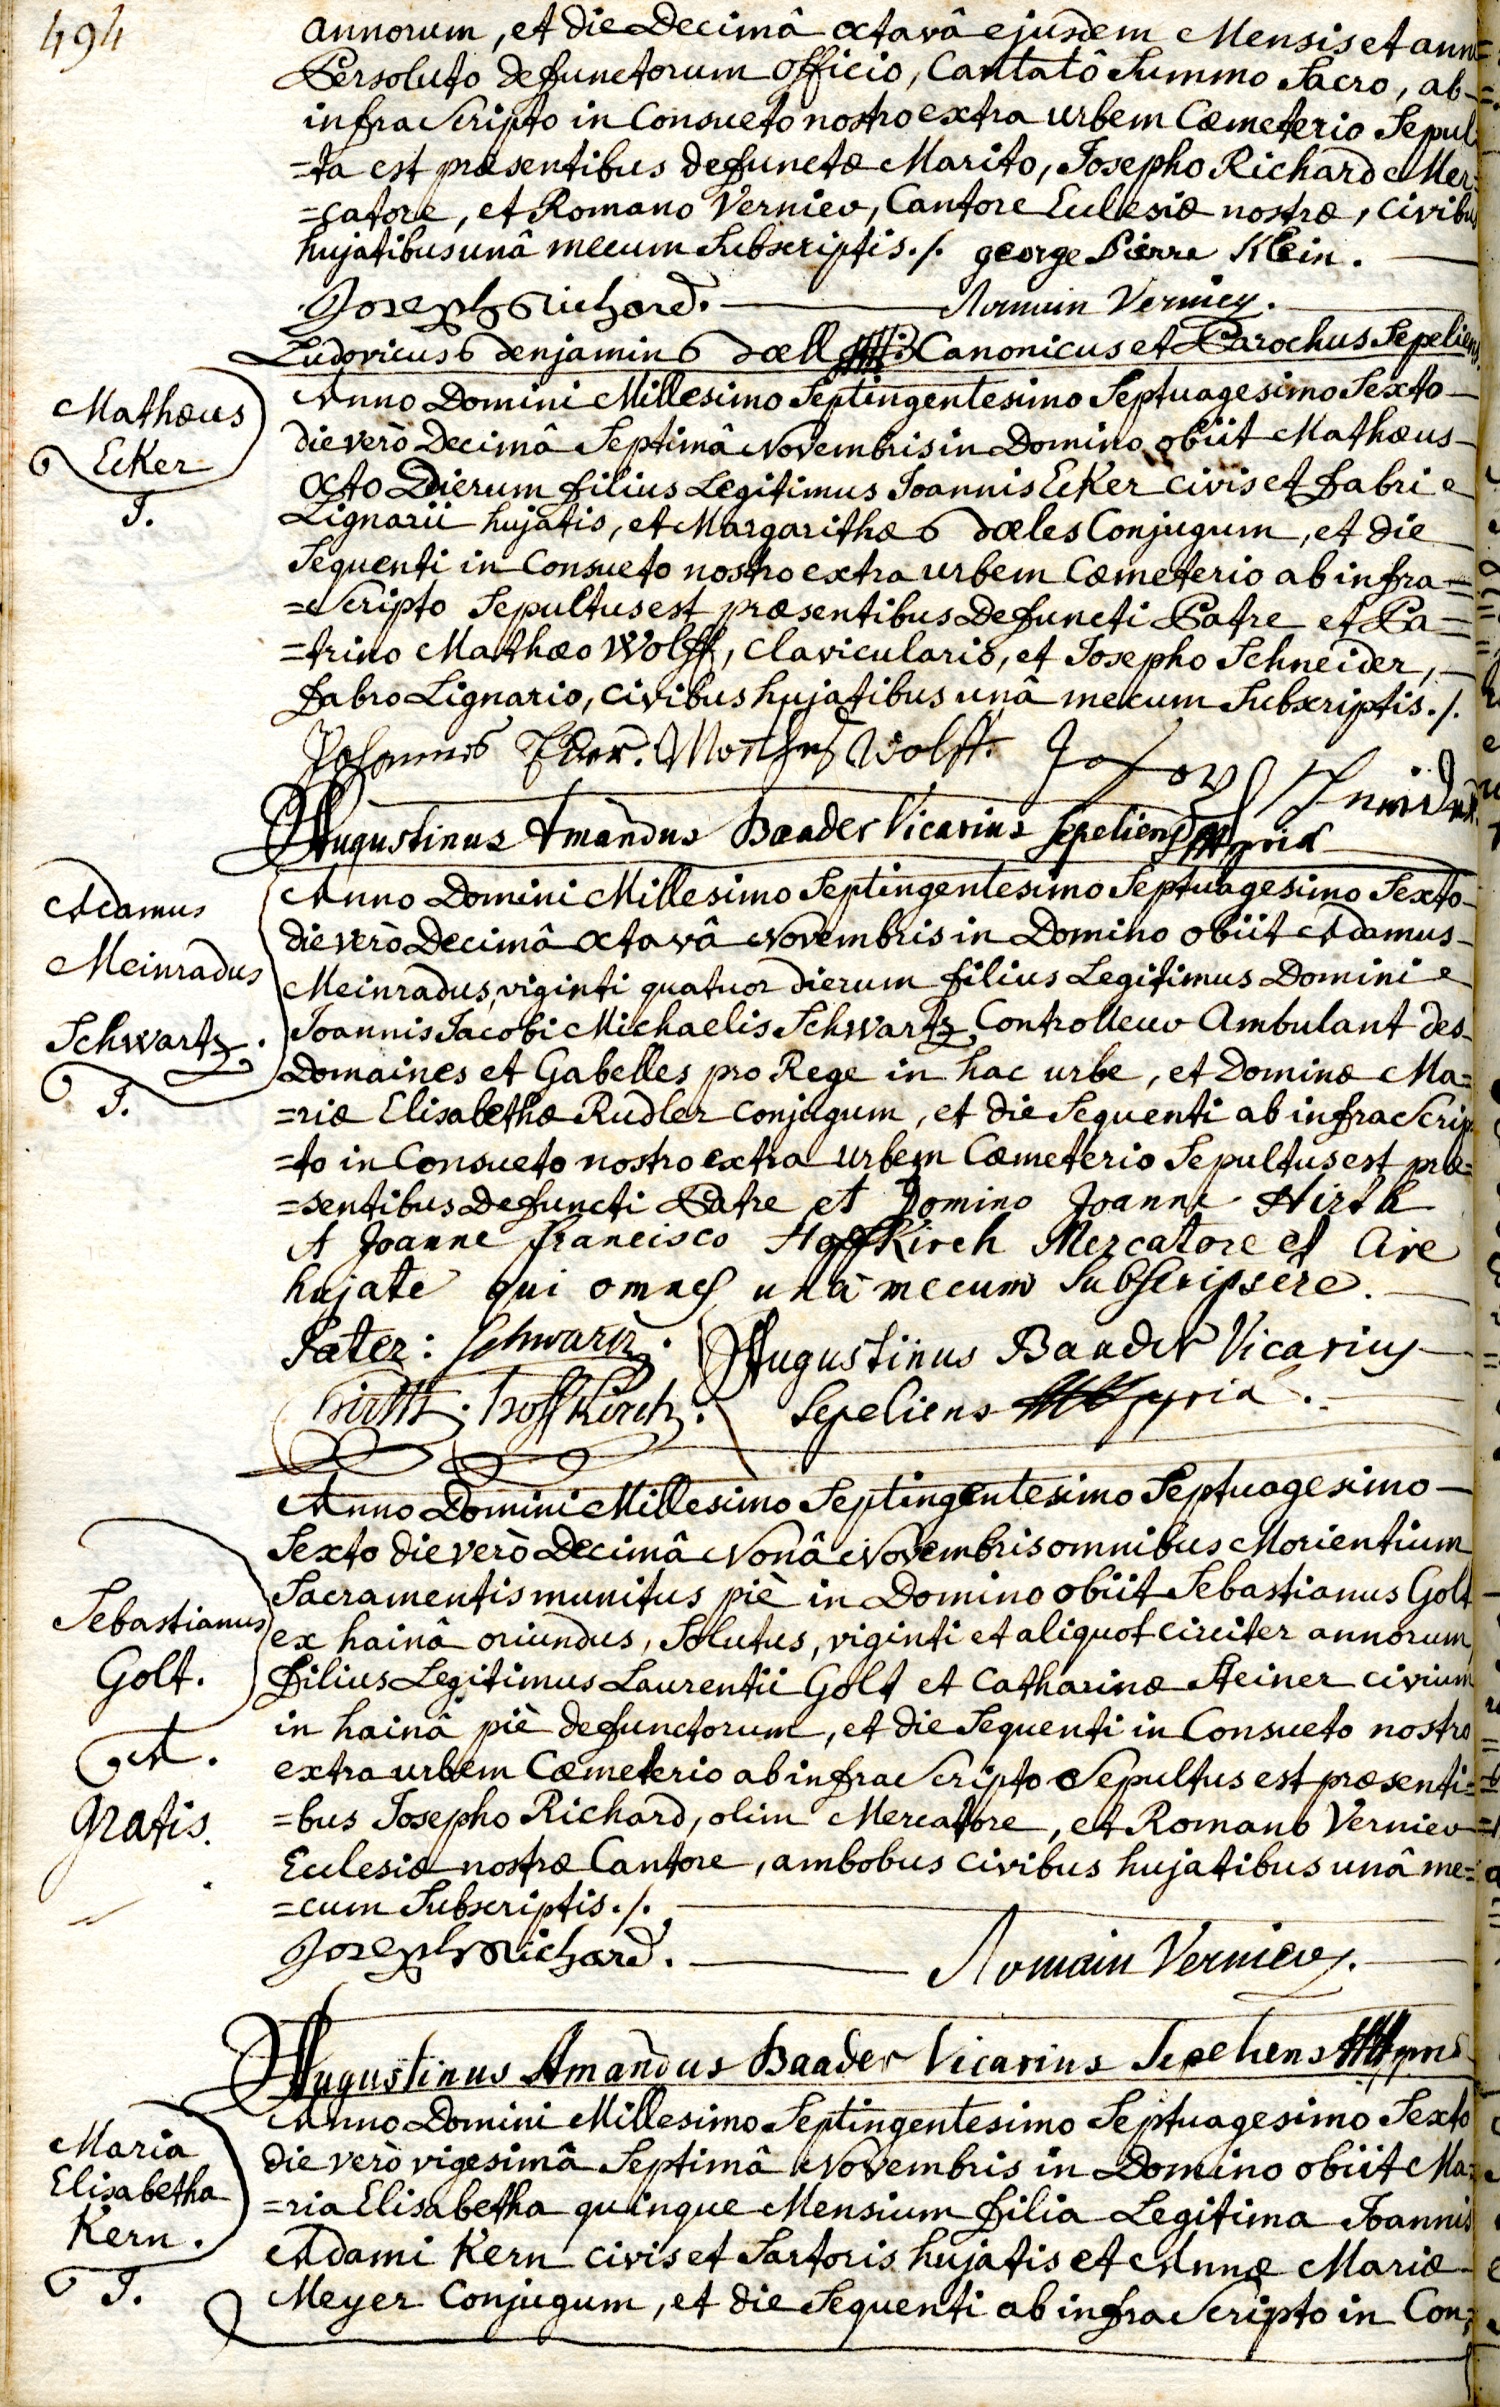 494
annorum, et die Decimâ octavâ ejusdem Mensis et ann
Persoluto defunctorum officio, Cantatô Summo Sacro, ab
infra Scripto in Consueto nostro extra urbem Cæmeterio Sepul
=ta est præsentibus defunctæ Marito, Josepho Richard Mer=
=catore, et Romano Vernier, Cantore Eclesiæ nostræ, civibu
hujatibus unâ mecum Subscriptis./. george Pierre Klein.
Joseph Richard. Romain Verniey.
Ludovicus benjamin doell Canonicus et Parochus Sepeliens
Mathæus
Ecker
J.
Anno Domini Millesimo Septingentesimo Septuagesimo Sexto
die verò Decimâ Septimâ Novembris in Domino obiit Mathæus
octo Dierum filius Legitimus Joannis Ecker civis et fabri
Lignarii hujatis, et Margarithæ dæles Conjugum, et die
Sequenti in Consueto nostro extra urbem Cæmeterio ab infra=
=Scripto Sepultus est præsentibus Defuncti Patre et Pa=
=trino Mathæo Wolff, Clavicularis, et Josepho Schneider,
fabro Lignario, civibus hujatibus unâ mecum Subscriptis./.
Johannes Ecker. Mathes Wolff. Josep Schneider
Augustinus Amandus Baader Vicarius sepeliens mpria
Adamus
Meinradus
Schwartz.
J.
Anno Domini Millesimo Septingentesimo Septuagesimo Sexto
die verò Decimâ octavâ Novembris in Domino obiit Adamus
Meinradus, viginti quatuor dierum filius Legitimus Domini
Joannis Jacobi Michaelis Schwartz, Controlleur Ambulant des
Domaines et Gabelles pro Rege in hac urbe, et Dominæ Ma=
=riæ Elisabethæ Rudler Conjugum, et die Sequenti ab infra Scrip
=to in Consueto nostro extra urbem Cæmeterio Sepultus est præ=
=sentibus Defuncti Patre et Domino Joanne Hirth
& Joanne francisco Hoffkirch Mercatore et Cive
hujate qui omnes unà mecum Subscripsère.
Pater: Schwartz. Augustinus Baader Vicarius
hirth. hoffkirch. Sepeliens mpria.
Sebastianus
Golt.
A.
gratis.
Anno Domini Millesimo Septingentesimo Septuagesimo
Sexto die verò Decimâ Nonâ Novembris omnibus Morientium
Sacramentis munitus piè in Domino obiit Sebastianus Golt
ex hainâ oriundus, Solutus, viginti et aliquot circiter annorum,
filius Legitimus Laurentii Golt et Catharinæ Steiner civium
in hainâ piè defunctorum, et die Sequenti in Consueto nostro
extra urbem Cæmeterio ab infra Scripto Sepultus est præsenti=
=bus Josepho Richard, olim Mercatore, et Romano Vernier
Eclesiæ nostræ Cantore, ambobus civibus hujatibus unâ me=
=cum Subscriptis./.
Joseph Richard. Romain Verniey.
Augustinus Amandus Baader Vicarius Sepeliens mpria
Maria
Elisabetha
Kern.
J.
Anno Domini Millesimo Septingentesimo Septuagesimo Sexto
die verò vigesimâ Septimâ Novembris in Domino obiit Ma=
=ria Elisabetha quinque Mensium filia Legitima Joannis
Adami Kern civis et Sartoris hujatis et Annæ Mariæ
Meyer Conjugum, et die Sequenti ab infra Scripto in Con=